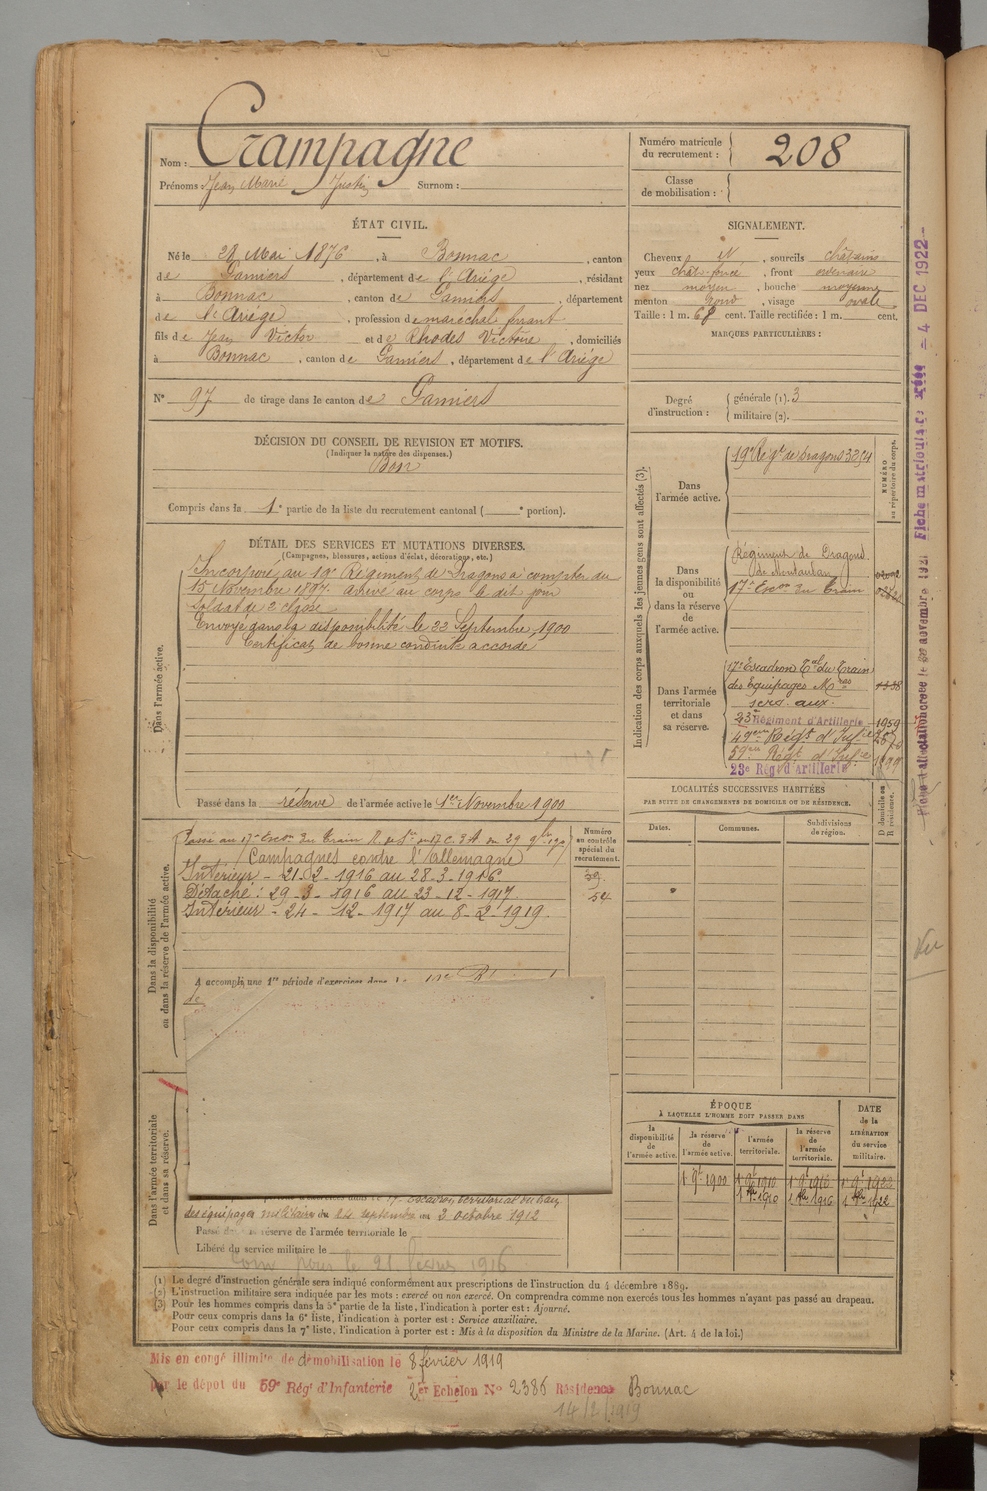 Nom : Crampagne
Prénoms : Jean Marie Justin Surnom :
Numéro matricule
du recrutement : 208
Classe
de mobilisation :
ÉTAT CIVIL.
Né le 28 Mai 1876, à Bonnac, canton
de Pamiers, département de l'Ariége, résidant
à Bonnac, canton de Pamiers, département
de l'Ariége, profession de maréchal ferrant
fils de Jean Victor et de Rhodes Victoire, domiciliés
à Bonnac, canton de Pamiers, département de l'Ariége
N° 97 de tirage dans le canton de Pamiers
SIGNALEMENT.
Cheveux N, sourcils châtains
yeux chât-foncé, front ordinaire
nez moyen, bouche moyenne
menton rond, visage ovale
Taille : 1 m. 68 cent. Taille rectifiée : 1 m. cent.
MARQUES PARTICULIÈRES :
Degré
d'instruction :
générale (1). 3
militaire (2).
DÉCISION DU CONSEIL DE REVISION ET MOTIFS.
(Indiquer la nature des dispenses.)
Bon
Compris dans la 1e partie de la liste du recrutement cantonal ( e portion).
DÉTAIL DES SERVICES ET MUTATIONS DIVERSES.
(Campagnes, blessures, actions d'éclat, décorations, etc.)
Dans l'armée active.
Incorporé au 19e Régiment de Dragons à compter du
15 Novembre 1897. Arrivé au corps le dit jour
Soldat de 2e classe
Envoyé dans la disponibilité le 22 Septembre 1900
Certificat de bonne conduite accordé
Passé dans la réserve de l'armée active le 1er Novembre 1900
Indication des corps auxquels les jeunes gens sont affectés (3).
NUMÉRO
au répertoire du corps.
Dans
l'armée active.
19e Régt de Dragons 3254
Dans
la disponibilité
ou
dans la réserve
de
l'armée active.
Régiment de Dragons
de Montauban
17e Escon du Train
Dans l'armée
territoriale
et dans
sa réserve.
17e Escadron Tal du Train
des Equipages Mres
serv. aux.
23e Régiment d'Artillerie 1959
49eme Régt d'Infie
59eme Régt d'Infie
23e Rég d'Artillerie
Dans la disponibilité
ou dans la réserve de l'armée active.
Passé au 17e Escon du Train
Numéro
au contrôle
spécial du
recrutement.
39
54
Campagnes contre l'Allemagne
Intérieur - 21-2-1916 au 28-3-1916.
Détaché : 29-3-1916 au 23-12-1917.
Intérieur - 24-12-1917 au 8-2-1919.
A accompli une 1re période d'exercices dans
de
LOCALITÉS SUCCESSIVES HABITÉES
PAR SUITE DE CHANGEMENTS DE DOMICILE OU DE RÉSIDENCE.
Dates.
Communes.
Subdivisions
de région.
D domicile ou
R résidence.
ÉPOQUE
À LAQUELLE L'HOMME DOIT PASSER DANS
la
disponibilité
de
l'armée active.
la réserve
de
l'armée active.
l'armée
territoriale.
la réserve
de
l'armée
territoriale.
DATE
de la
LIBÉRATION
du service
militaire.
1 9bre 1900 1 9bre 1910 1 9bre 1916 1 9bre 1922
1 8bre 1910 1 8bre 1916 1 8bre 1922
Dans l'armée territoriale
et dans sa réserve.
17e Escadron territorial du train
des équipages militaires du 24 septembre au 2 octobre 1912
Passé dans la réserve de l'armée territoriale le
Libéré du service militaire le
(1) Le degré d'instruction générale sera indiqué conformément aux prescriptions de l'instruction du 4 décembre 1889.
(2) L'instruction militaire sera indiquée par les mots : exercé ou non exercé. On comprendra comme non exercés tous les hommes n'ayant pas passé au drapeau.
(3) Pour les hommes compris dans la 5e partie de la liste, l'indication à porter est : Ajourné.
Pour ceux compris dans la 6e liste, l'indication à porter est : Service auxiliaire.
Pour ceux compris dans la 7e liste, l'indication à porter est : Mis à la disposition du Ministre de la Marine. (Art. 4 de la loi.)
Mis en congé illimité de démobilisation le 8 février 1919
par le dépot du 59e Rég d'Infanterie 2er Echelon N° 2386 Résidence Bonnac
14/2/1919
4 DEC 1922
Vu